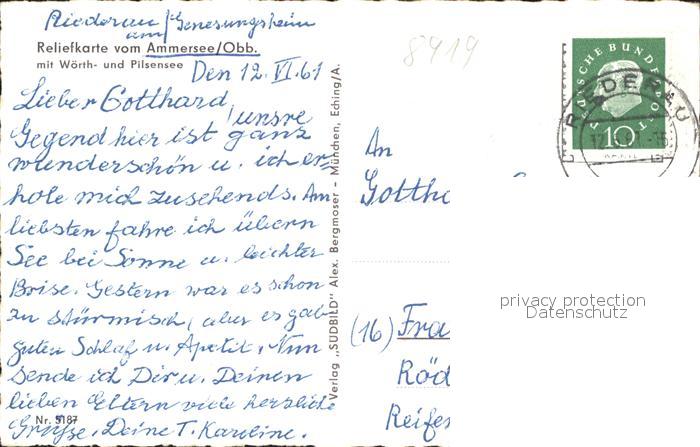 Riederau/Genesungsheim
am/
Reliefkarte vom Ammersee/Obb.
mit Wörth- und Pilsensee
Den 12. VI. 61
Lieber Gotthard, unsre
Gegend hier ist ganz
wunderschön u. ich er-
hole mich zusehends. Am
liebsten fahre ich übern
See bei Sonne u. leichter
Brise. Gestern war es schon
zu stürmisch, aber es gab
guten Schlaf u. Apetit. Nun
sende ich Dir u. Deinen
lieben Eltern viele herzliche
Grüsse, Deine T. Karoline.
Nr. 5187
Verlag „SÜDBILD" Alex. Bergmoser – München, Eching/A.
8919
DEUTSCHE BUNDESPOST
10
RIEDERAU
An
Gottha
(16) Fra
Röd
Reifen
privacy protection
Datenschutz